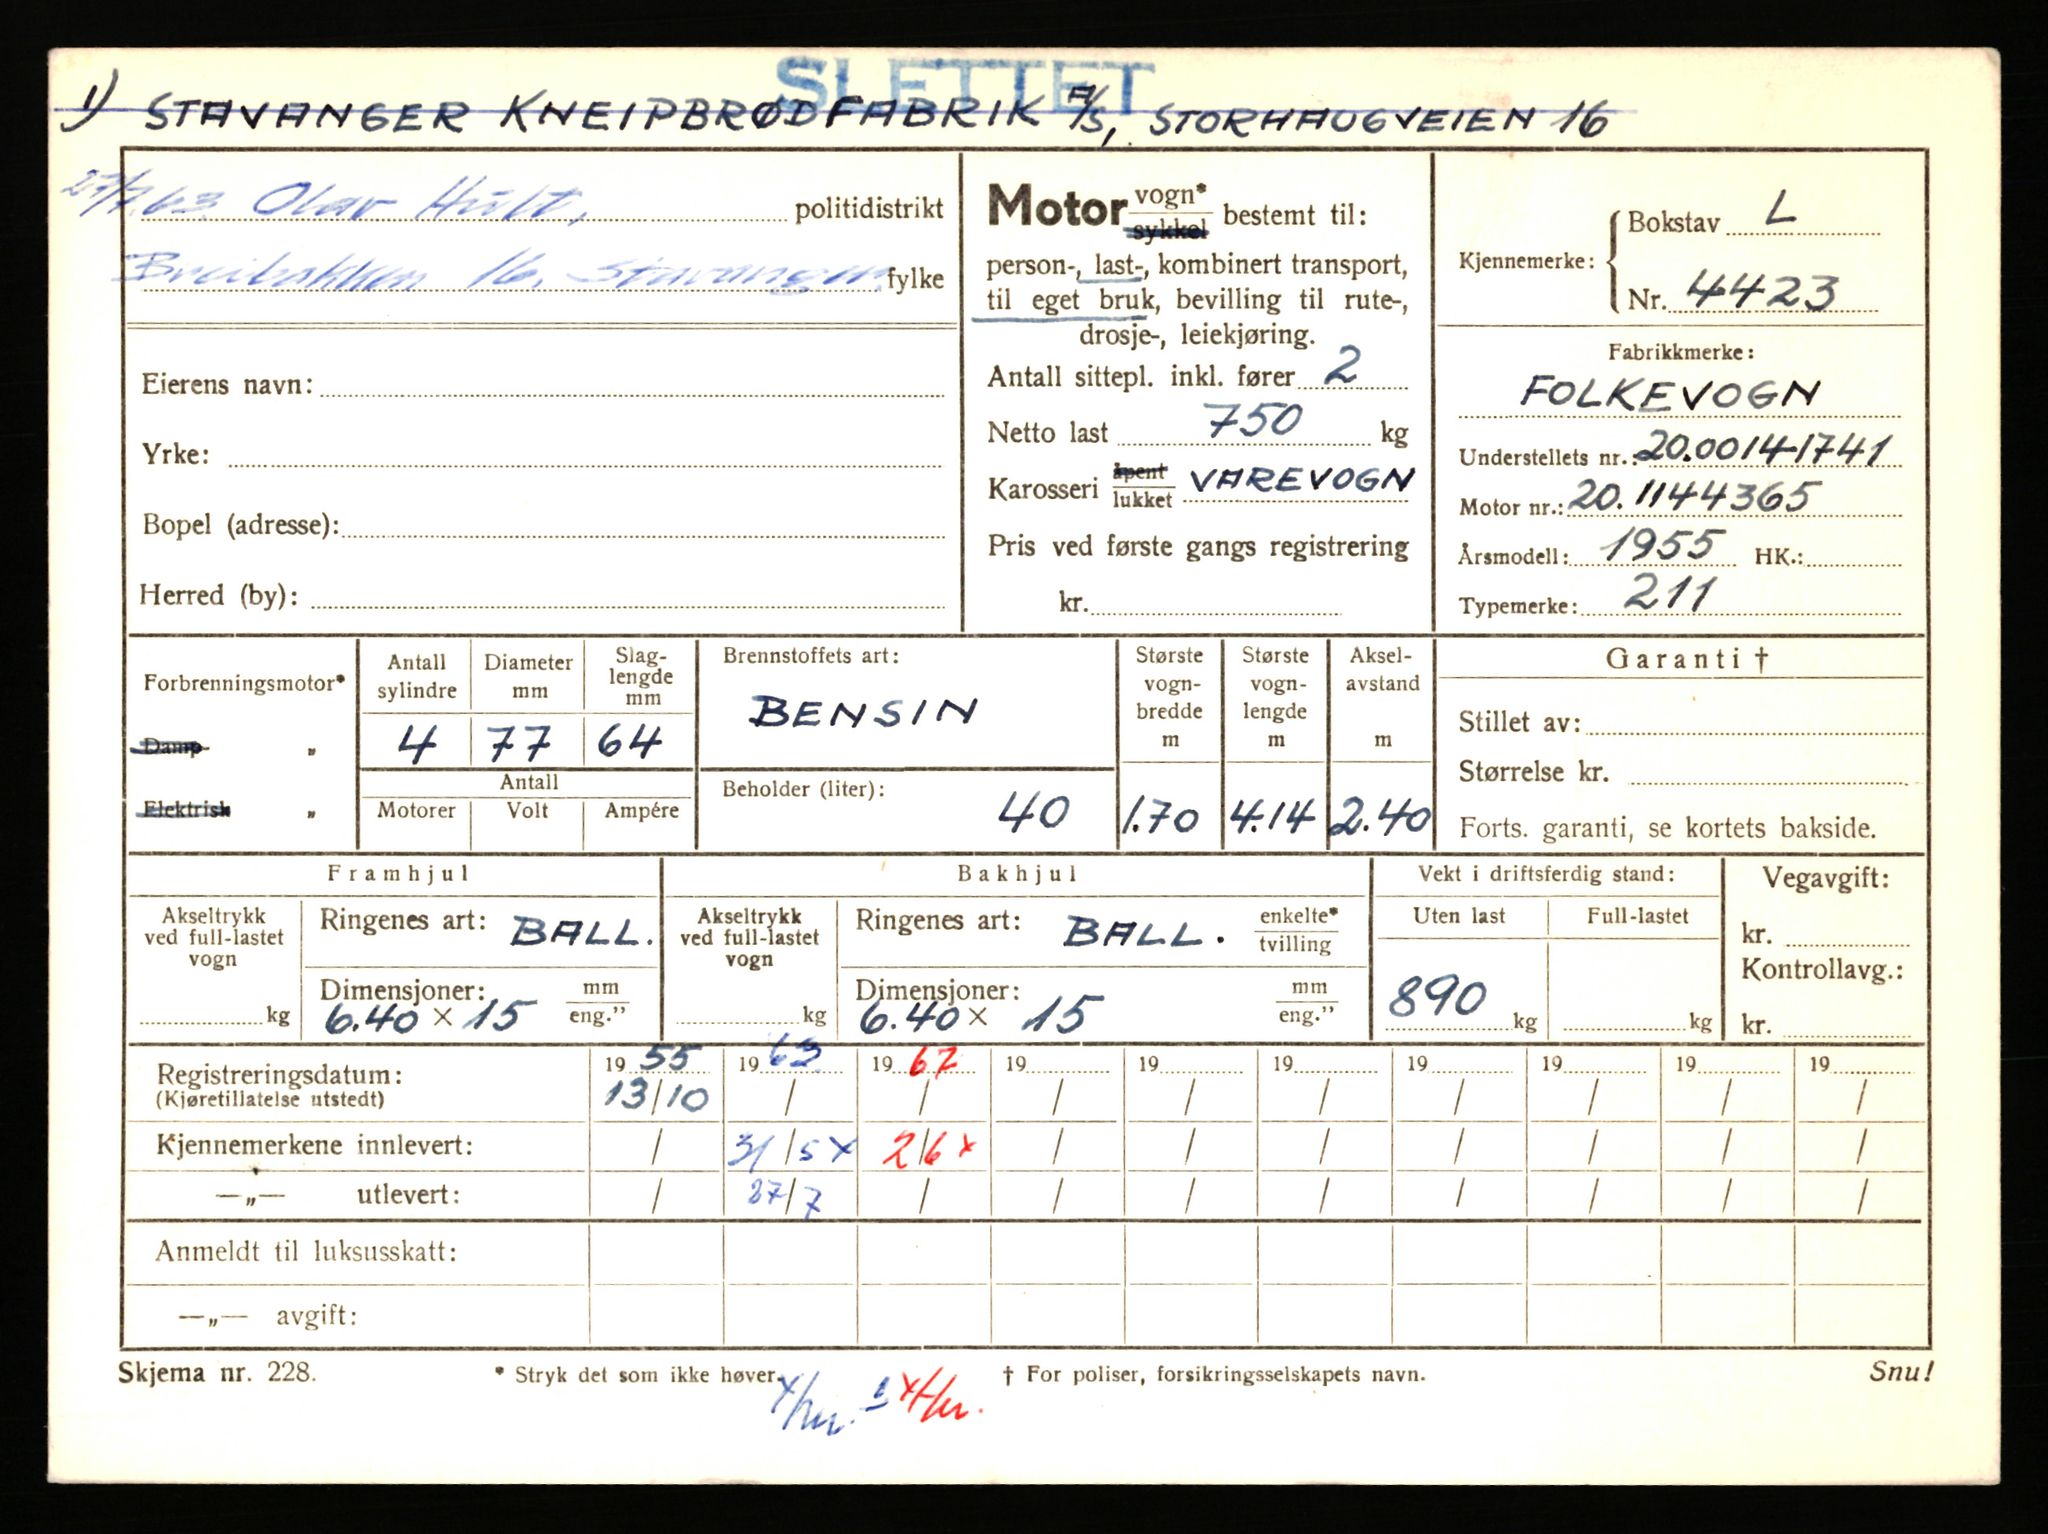 SLETTET
1) STAVANGER KNEIPBRØDFABRIK A/S, STORHAUGVEIEN 16
27/7.63. Olav Hult, politidistrikt
Breibakken 16, Stavanger. fylke
Eierens navn:
Yrke:
Bopel (adresse):
Herred (by):
Motor vogn* / sykkel bestemt til:
person-, last-, kombinert transport,
til eget bruk, bevilling til rute-,
drosje-, leiekjøring.
Antall sittepl. inkl. fører 2
Netto last 750 kg
Karosseri åpent / lukket VAREVOGN
Pris ved første gangs registrering
kr.
Kjennemerke: Bokstav L
Nr. 4423
Fabrikkmerke:
FOLKEVOGN
Understellets nr.: 20.0014-1741
Motor nr.: 20.1144365
Årsmodell: 1955 HK.:
Typemerke: 211
Forbrenningsmotor*
Damp „
Elektrisk „
Antall sylindre Diameter mm Slaglengde mm
4 77 64
Antall
Motorer Volt Ampére
Brennstoffets art:
BENSIN
Beholder (liter):
40
Største vognbredde m 1.70
Største vognlengde m 4.14
Akselavstand m 2.40
Garanti †
Stillet av:
Størrelse kr.
Forts. garanti, se kortets bakside.
Framhjul
Akseltrykk ved full-lastet vogn kg
Ringenes art: BALL.
Dimensjoner: mm / eng.”
6.40 × 15
Bakhjul
Akseltrykk ved full-lastet vogn kg
Ringenes art: BALL. enkelte* / tvilling
Dimensjoner: mm / eng.”
6.40 × 15
Vekt i driftsferdig stand:
Uten last Full-lastet
890 kg kg
Vegavgift:
kr.
Kontrollavg.:
kr.
Registreringsdatum: 19 55 19 63 19 67 19 19 19 19 19 19 19
(Kjøretillatelse utstedt) 13/10 / / / / / / / / /
Kjennemerkene innlevert: / 31/5 x 2/6 x / / / / / / /
—„— utlevert: / 27/7 / / / / / / / /
Anmeldt til luksusskatt:
—„— avgift:
Skjema nr. 228. * Stryk det som ikke høver. † For poliser, forsikringsselskapets navn. Snu!